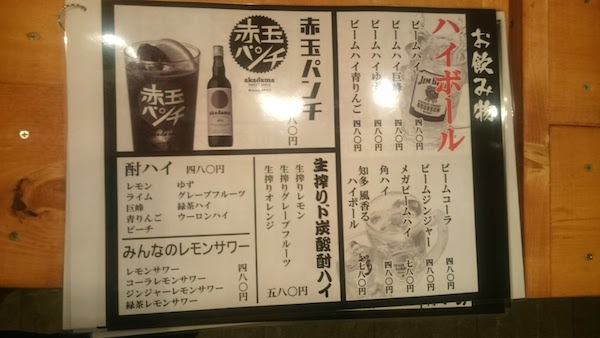 お飲み物
ハイボール
ビームハイ 四八〇円
ビームハイ巨峰 四八〇円
ビームハイゆず 四八〇円
ビームハイ青りんご 四八〇円
JIM BEAM
BOURBON
ビームコーラ 四八〇円
ビームジンジャー 四八〇円
メガビームハイ 七八〇円
角ハイ 四八〇円
知多 風香る
ハイボール 七八〇円
赤玉パンチ
八〇円
赤玉
パンチ
akadama
赤玉
パンチ
akadama
生搾り、ド炭酸酎ハイ
生搾りレモン
生搾りグレープフルーツ
生搾りオレンジ
五八〇円
酎ハイ 四八〇円
レモン ゆず
ライム グレープフルーツ
巨峰 緑茶ハイ
青りんご ウーロンハイ
ピーチ
みんなのレモンサワー
レモンサワー
コーラレモンサワー
ジンジャーレモンサワー
緑茶レモンサワー
四八〇円